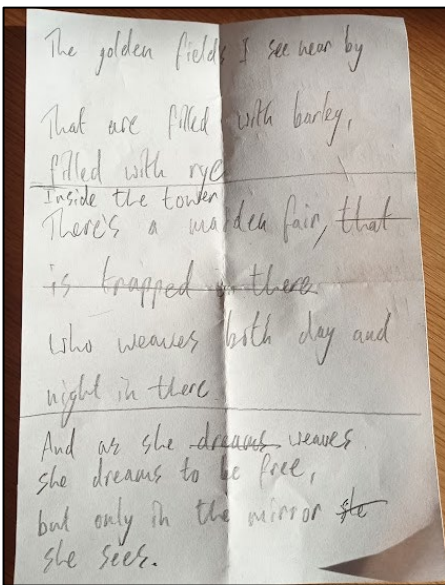 The golden fields I see near by
That are filled with barley,
filled with rye
Inside the tower
There's a maiden fair, that
is trapped in there
who weaves both day and
night in there.
And as she dreams weaves
she dreams to be free,
but only in the mirror she
she sees.